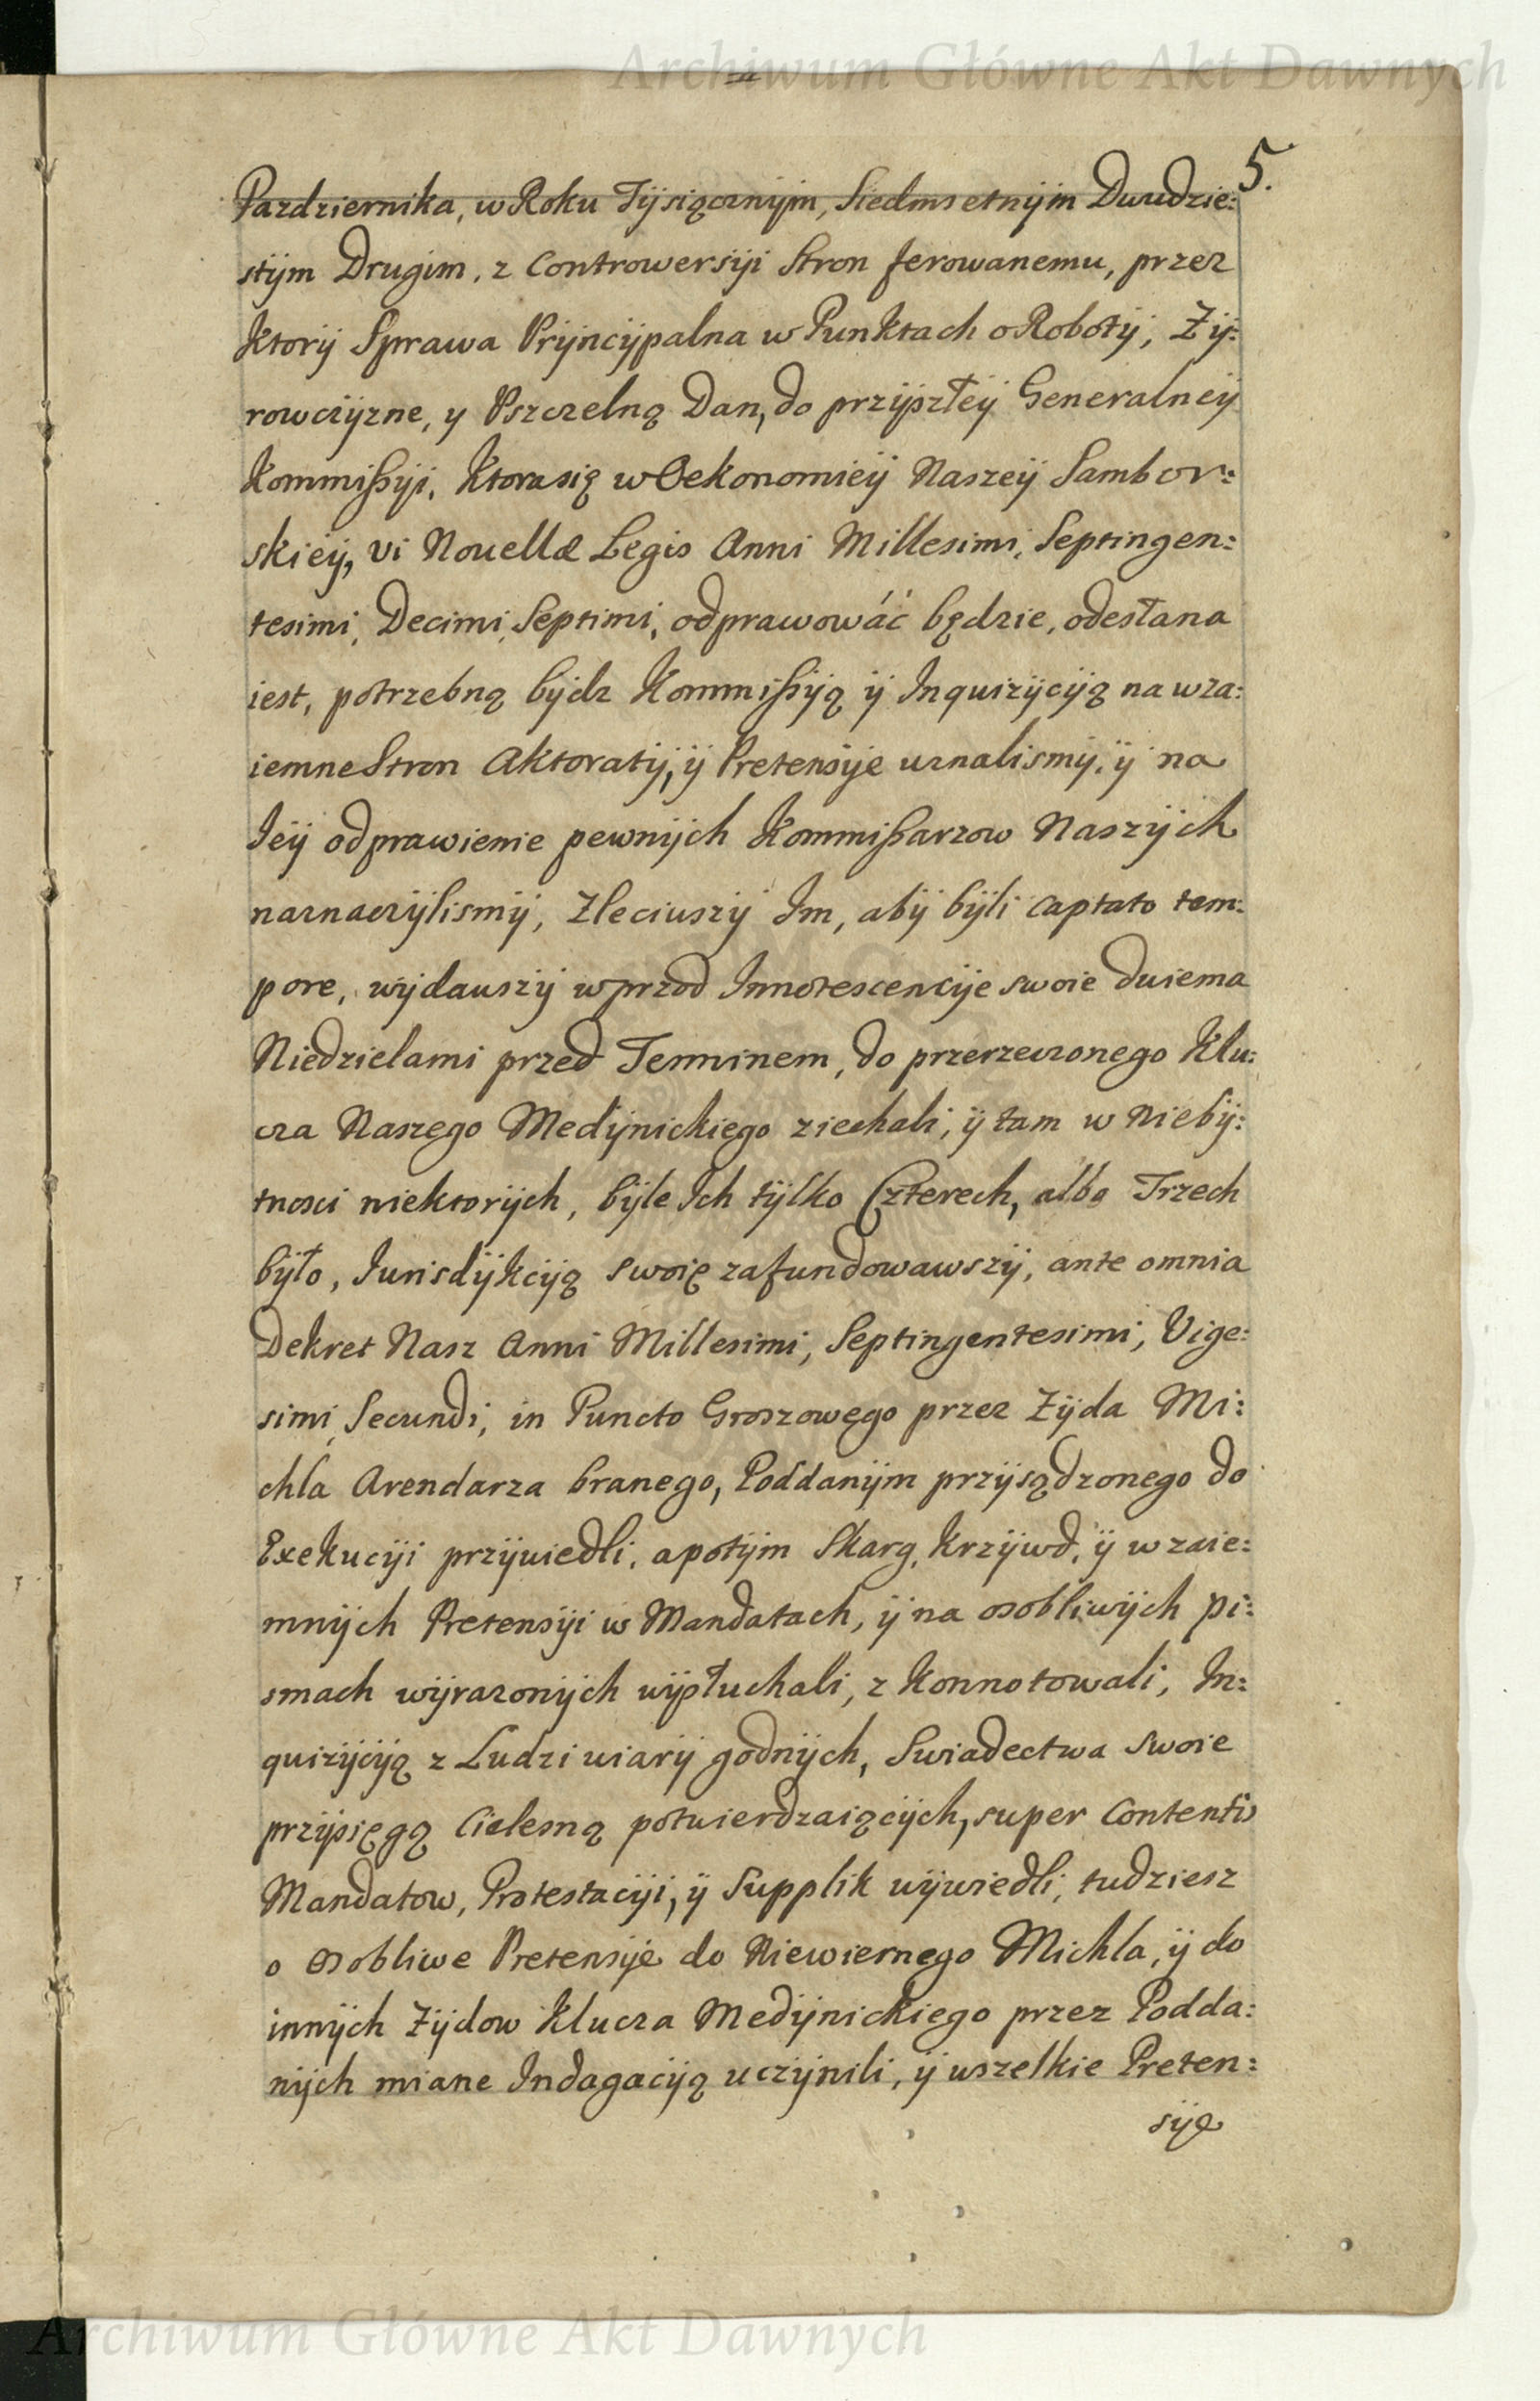 Archiwum Główne Akt Dawnych
5.
Pazdziernika, w Roku Tysiącznÿm, Siedmsetnÿm Dwudzie:
stÿm Drugim, z Controwersÿi Stron ferowanemu, przez
ktorÿ Sprawa Prÿncÿpalna w Punktach o Robotÿ, Zÿ:
rowczÿzne, y Pszczelną Dan, do przÿszłeÿ Generalneÿ
Kommißÿi, ktora się w Oekonomieÿ Naszeÿ Sambor:
skieÿ, vi Novellæ Legis Anni Millesimi, Septingen:
tesimi, Decimi, Septimi, odprawowáć będzie, odesłana
iest, potrzebną bÿdz Kommißÿą ÿ Inquizÿcÿą na wza:
iemne Stron Aktoratÿ, ÿ Pretensÿe uznalismÿ, ÿ na
Ieÿ odprawienie pewnÿch Kommißarzow Naszÿch
naznaczÿlismÿ, Zleciwszÿ Im, abÿ bÿli captato tem:
pore, wÿdawszÿ wprzod Innotescencÿe swoie dwiema
Niedzielami przed Terminem, do przerzeczonego Klu:
cza Naszego Medÿnickiego ziechali, ÿ tam w Niebÿ:
tnosci niektorÿch, bÿle Ich tÿlko Czterech, albo Trzech
bÿło, Iurisdÿkcÿą swoię zafundowawszÿ, ante omnia
Dekret Nasz Anni Millesimi, Septingentesimi, Vige:
simi, Secundi, in Puncto Groszowego przez Zÿda Mi:
chla Arendarza branego, Poddanÿm przÿsądzonego do
Exekucÿi przÿwiedli, a potÿm Skarg, Krzÿwd, ÿ wzaie:
mnÿch Pretensÿi w Mandatach, ÿ na osobliwÿch pi:
smach wÿrazonÿch wÿsłuchali, z konnotowali, In:
quizÿcÿą z Ludzi wiarÿ godnÿch, Swiadectwa swoie
przÿsięgą Cielesną potwierdzaiącÿch, super Contentis
Mandatow, Protestacÿi, ÿ Supplik wÿwiedli, tudziesz
o osobliwe Pretensÿe do Niewiernego Michla, ÿ do
innÿch Zÿdow Klucza Medÿnickiego przez Podda:
nÿch miane Indagacÿą uczÿnili, ÿ wszelkie Preten:
sÿe
Archiwum Główne Akt Dawnych